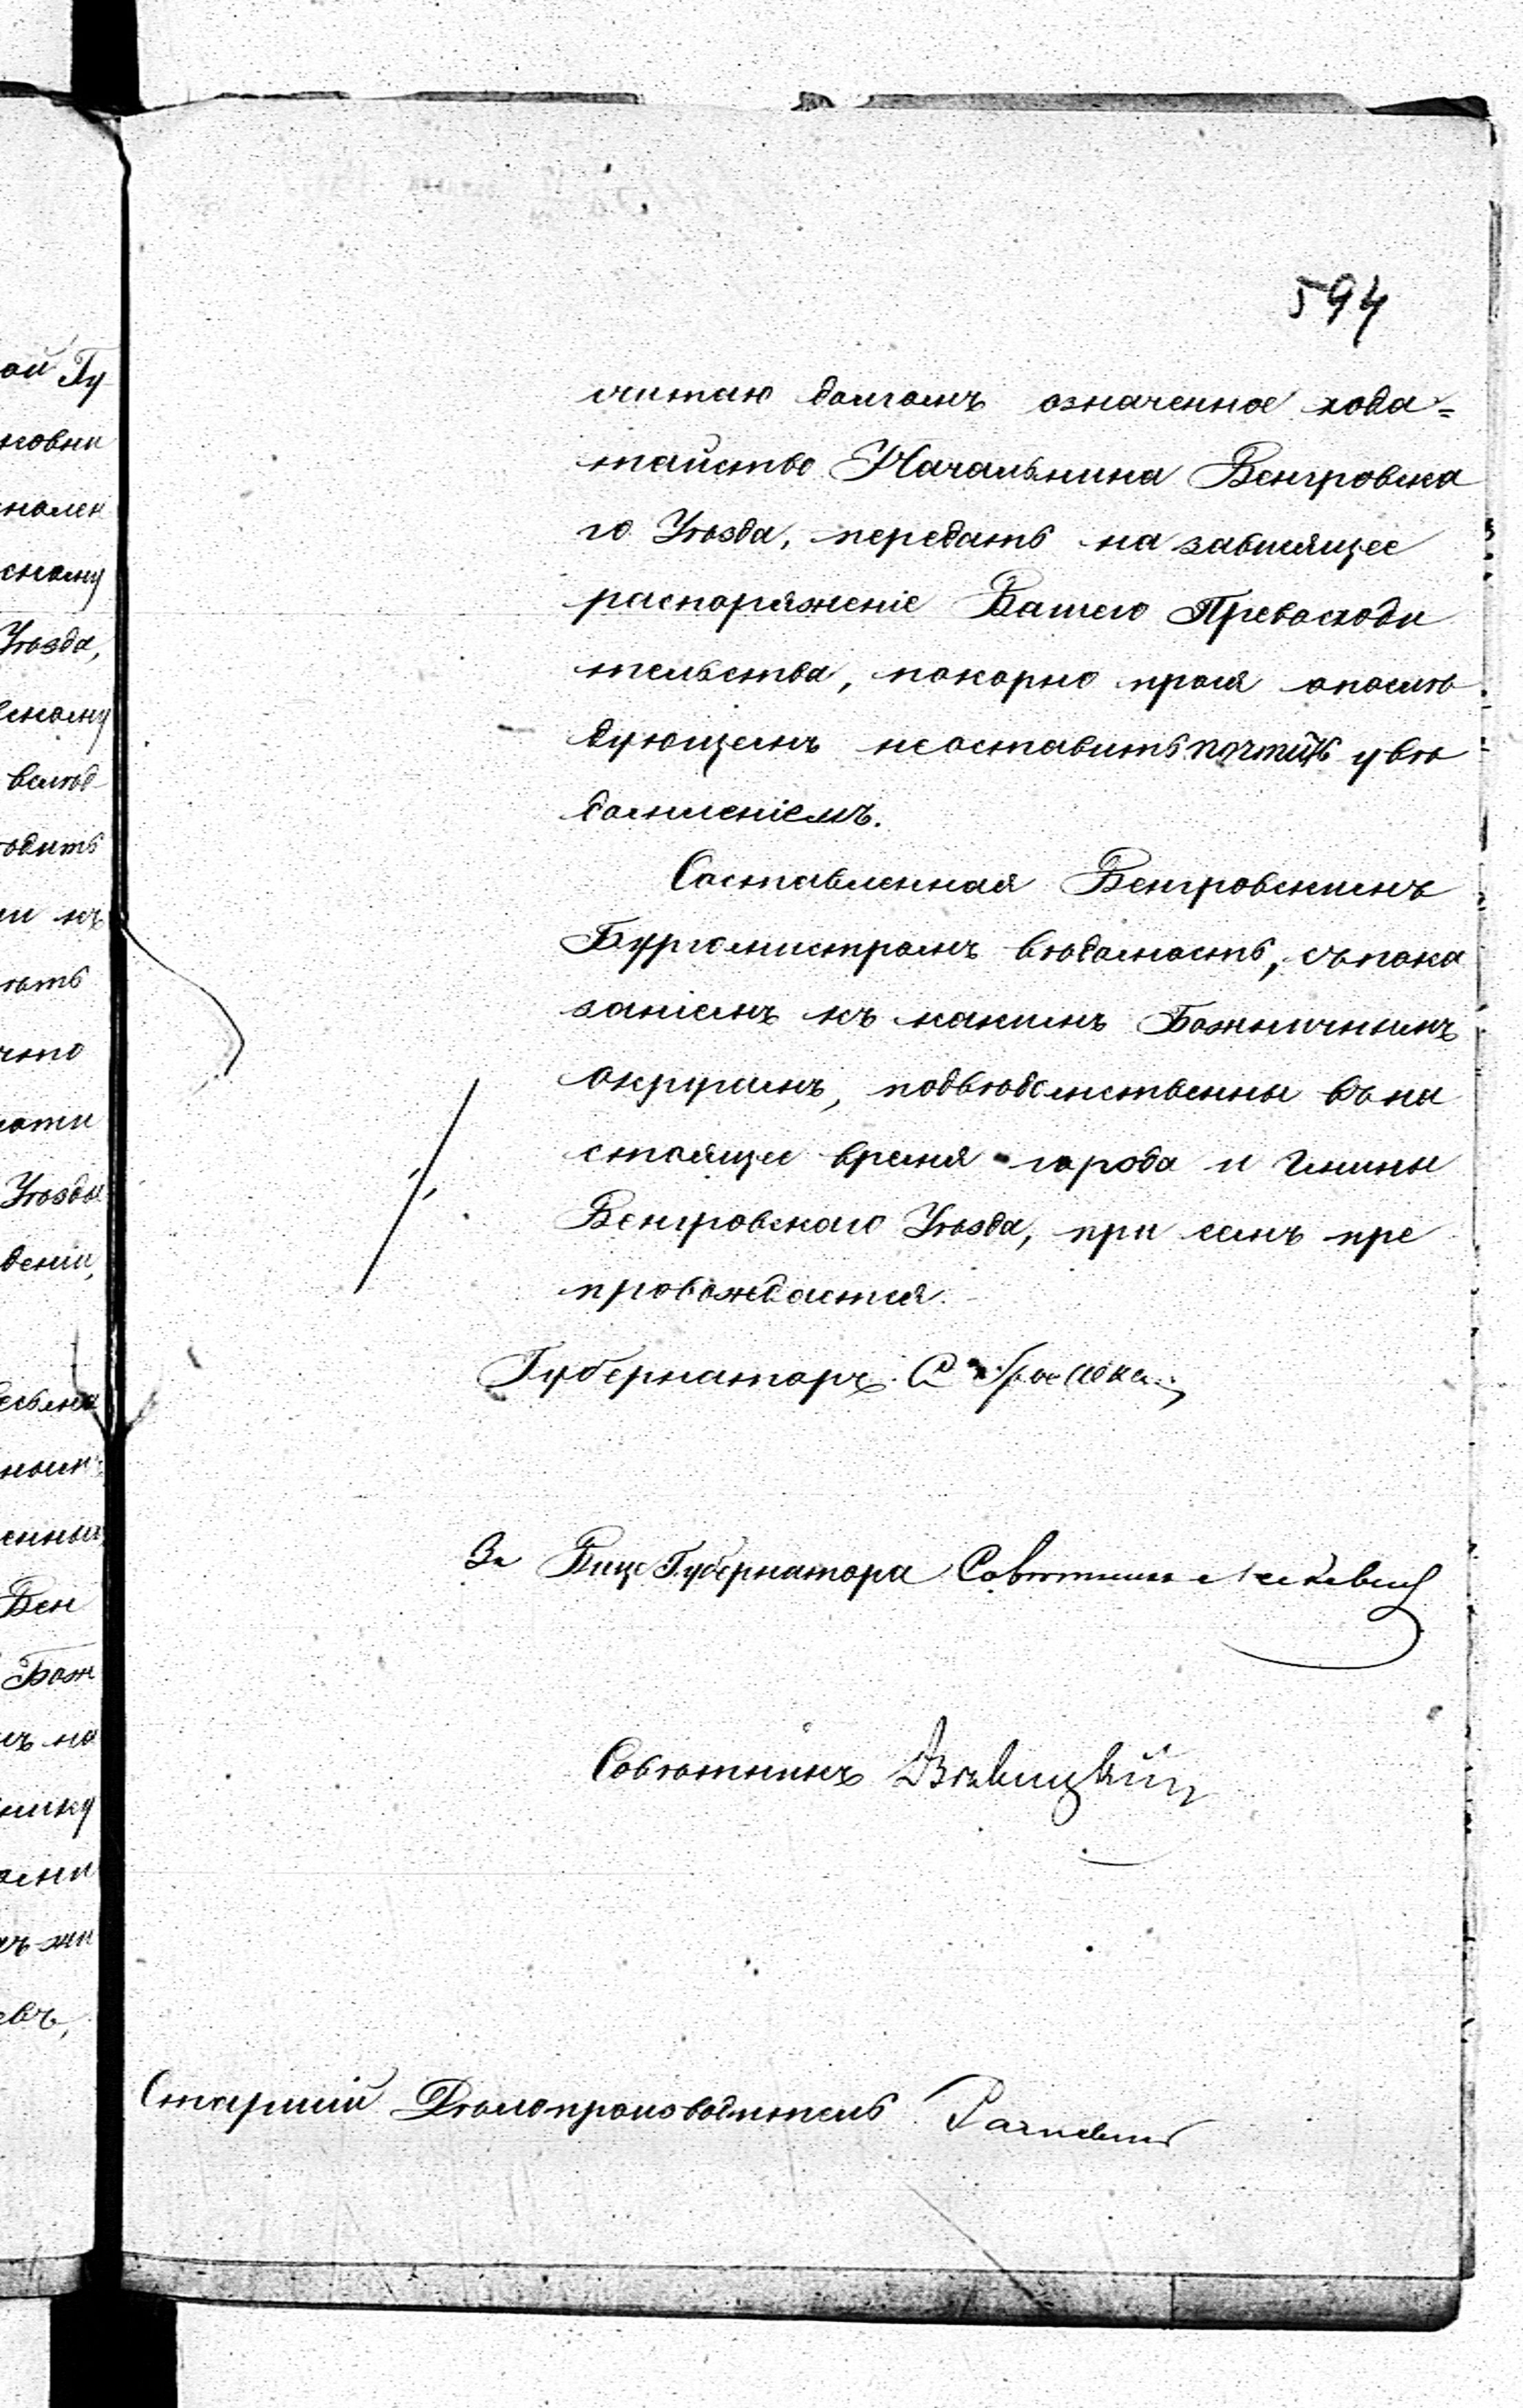 594
считаю долгомъ означенное хода=
тайство Начальника Венгровска
го Уѣзда, передать на зависящее
распоряженіе Вашего Превосходи
тельства, покорно прося опослѣ
дующемъ неоставить почтить увѣ
домленіемъ.
Составленная Венгровскимъ
Бургомистромъ вѣдомость, съ пока
заніемъ къ какимъ Божничнымъ
округамъ, подвѣдомственны въ на
стоящее время города и гмины
Венгровскаго Уѣзда, при семъ пре
провождается.
Губернаторъ
За Вице Губернатора Совѣтникъ
Совѣтникъ
Старшій Дѣлопроизводитель
ой Гу
Уѣзда,
одить
Уѣзды
деніи,
Вен
Бож